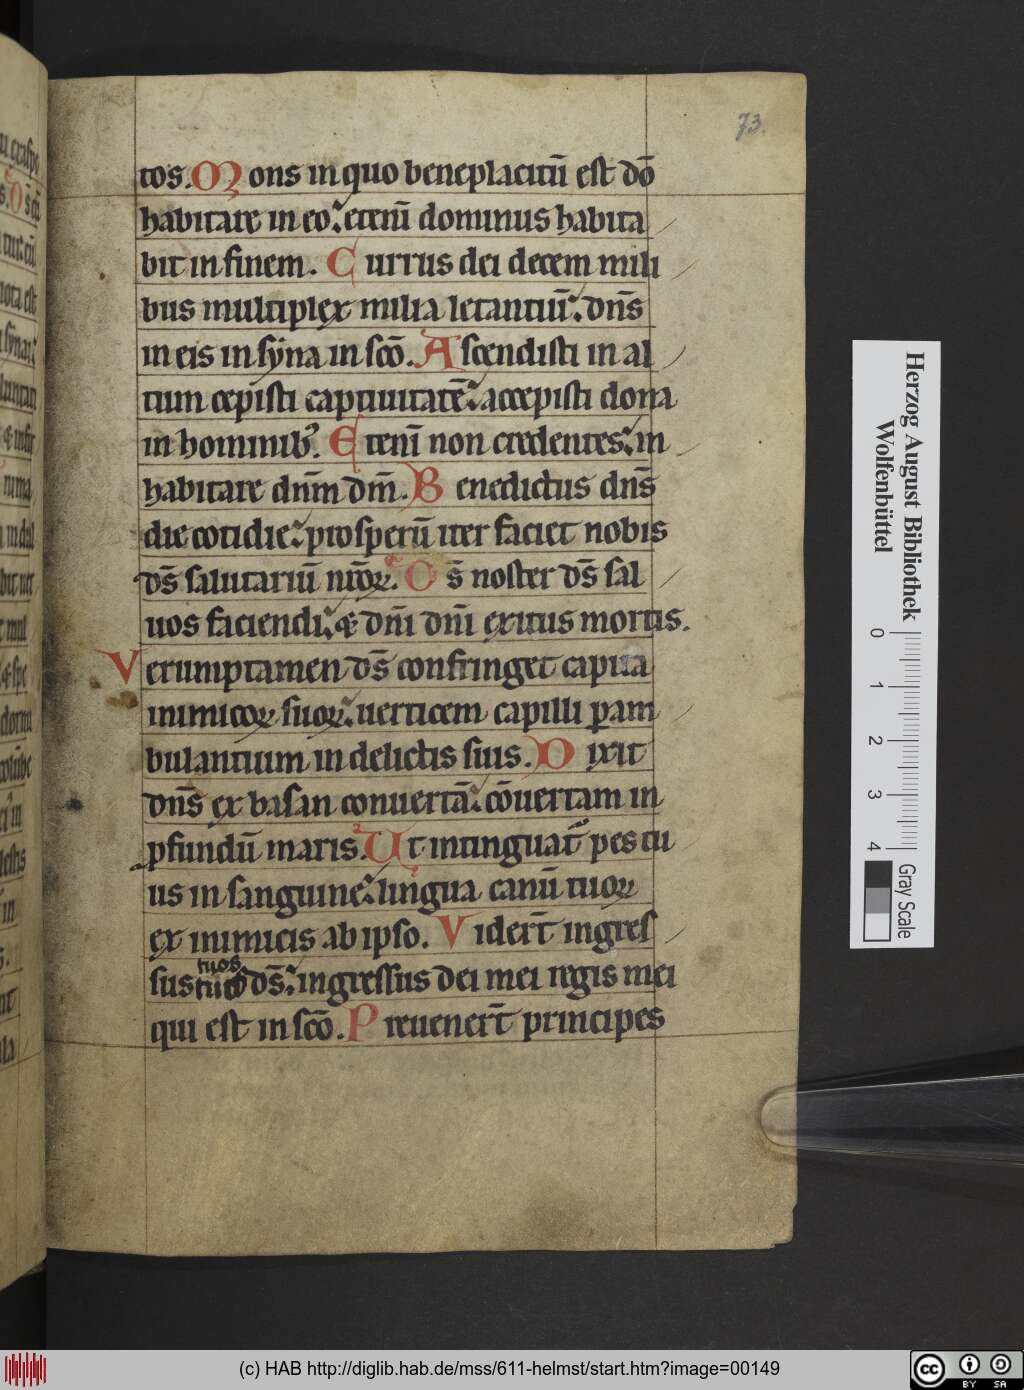 73.
tos. Mons in quo beneplacitū est dō
habitare in eo. etenī dominus habita
bit in finem. Currus dei decem mili
bus multiplex milia letantiū. dn̄s
in eis in syna in scō. Ascendisti in al
tum cepisti captiuitatē. accepisti dona
in hominib9. Etenī non credentes. in
habitare dn̄m dm̄. Benedictus dn̄s
die cotidie. prosperū iter faciet nobis
ds̄ salutariū nr̄oꝝ. Ds̄ noster ds̄ sal
uos faciendi. & dn̄i dn̄i exitus mortis.
Verumptamen ds̄ confringet capita
inimicoꝝ suoꝝ. uerticem capilli ꝑam
bulantium in delictis suis. Dixit
dn̄s ex basan conuertā. cōuertam in
pfundū maris. Ut intinguat̄ pes tu
us in sanguine. lingua canū tuoꝝ
ex inimicis ab ipso. Vider̄t ingres
tuos
sus ds̄. ingressus dei mei regis mei
qui est in scō. Preuener̄t principes
Herzog August Bibliothek
Wolfenbüttel
0 1 2 3 4
Gray Scale
(c) HAB http://diglib.hab.de/mss/611-helmst/start.htm?image=00149
cc BY SA